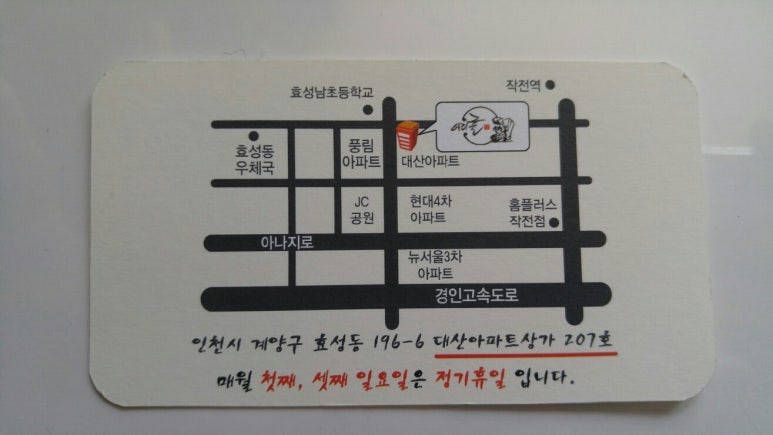 효성남초등학교
작전역
효성동
우체국
풍림
아파트
대산아파트
JC
공원
현대4차
아파트
홈플러스
작전점
아나지로
뉴서울3차
아파트
경인고속도로
인천시 계양구 효성동 196-6 대산아파트상가 207호
매월 첫째, 셋째 일요일은 정기휴일 입니다.